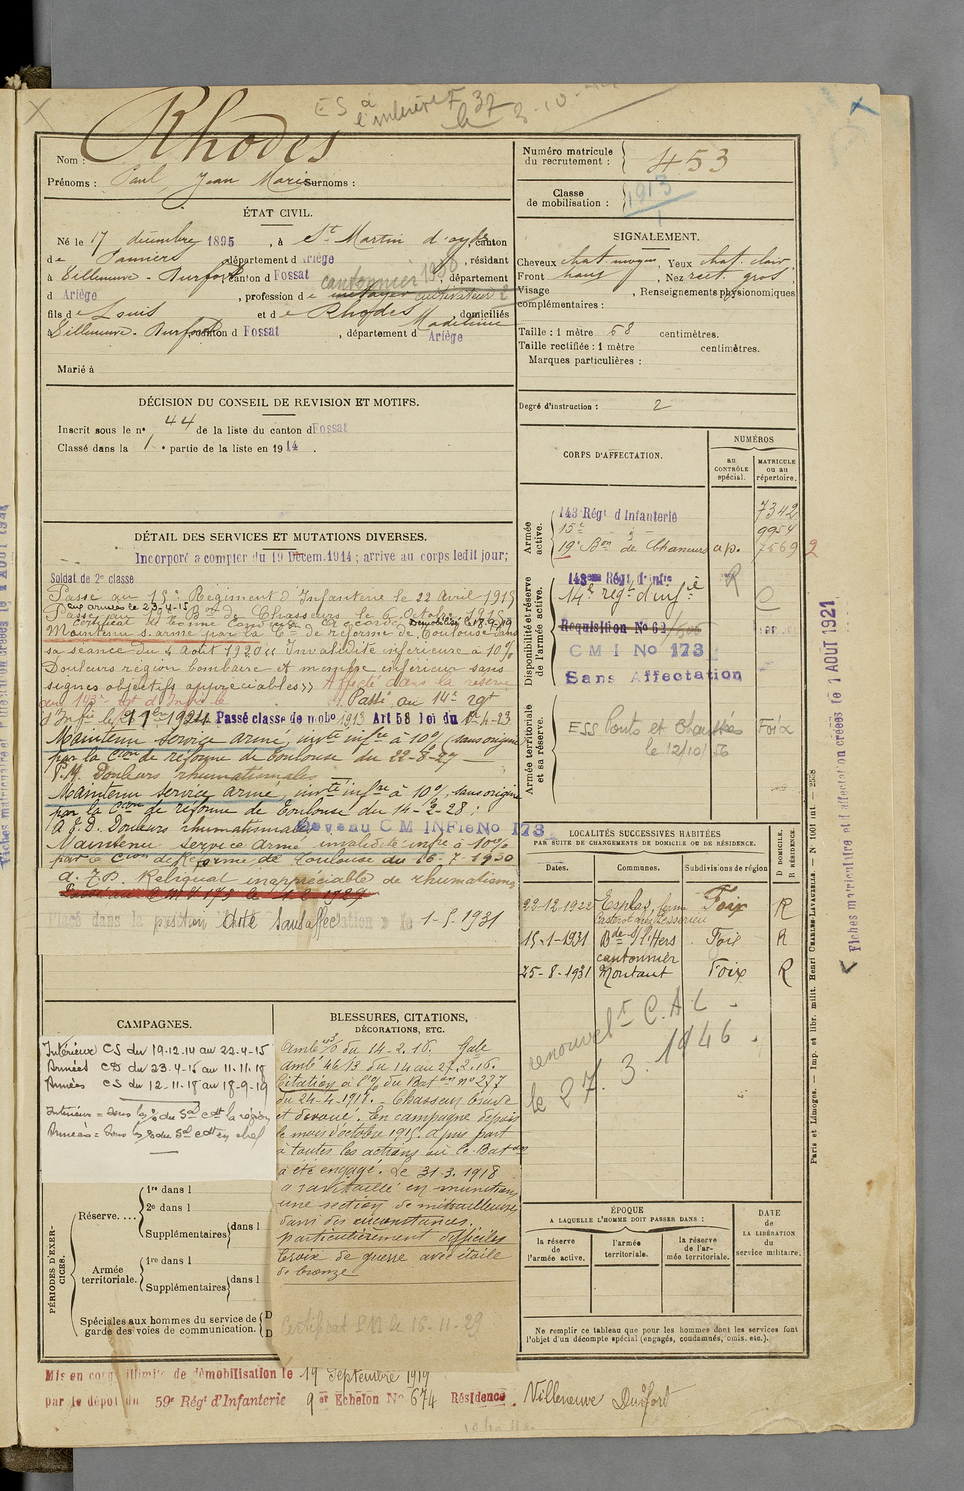 ES à l'intérieur 37
le 3-10-
Rhodes
Nom :
Prénoms : Paul, Jean Marie Surnoms :
Numéro matricule du recrutement : 453
Classe de mobilisation : 1913
ÉTAT CIVIL.
Né le 17 décembre 1895, à St Martin d'oydes, canton
de Pamiers, département d Ariège, résidant
à Villeneuve-Durfort, canton d Fossat, département
cantonnier 1930
d Ariège, profession de cultivateur 2
fils de Louis et de Rhodes Madeleine, domiciliés
à Villeneuve-Durfort, canton d Fossat, département d Ariège
Marié à
SIGNALEMENT.
Cheveux chat. moyen, Yeux chat. clair
Front haut, Nez rect. gros
Visage , Renseignements physionomiques
complémentaires :
Taille : 1 mètre 68 centimètres.
Taille rectifiée : 1 mètre centimètres.
Marques particulières :
Degré d'instruction : 2
DÉCISION DU CONSEIL DE REVISION ET MOTIFS.
Inscrit sous le n° 44 de la liste du canton d Fossat
Classé dans la 1° partie de la liste en 1914.
DÉTAIL DES SERVICES ET MUTATIONS DIVERSES.
Incorporé à compter du 19 Décem. 1914 ; arrivé au corps ledit jour;
Soldat de 2e classe
Passé au 15e Régiment d'Infanterie le 22 Avril 1915
aux armées le 23-4-15
Passé au 19e Bon de Chasseurs le 6 Octobre 1915
Certificat de bonne conduite accordé Démobilisé le 18-9-19
Maintenu s. armé par la Con de réforme de Toulouse dans
sa séance du 4 Août 1920 « Invalidité inférieure à 10%
Douleurs région lombaire et membre inférieur sans
signes objectifs appréciables » Affecté dans la réserve
au 143e rgt d'Infrie Passé au 14e rgt
d'Infie le 1924 Passé classe de mobon 1913 Art 58 loi du 1er-4-23
Maintenu service armé, invté infre à 10%, sans origine
par la Cion de réforme de Toulouse du 22-8-27
P.M. Douleurs rhumatismales
Maintenu service armé, invté infre à 10%, sans origine
par la Cion de réforme de Toulouse du 14-2-28 ;
Douleurs rhumatismales Devenu C M INFie No 173
Maintenu Service Armé invalidité infre à 10%
par la Cion de Réforme de Toulouse du 16-7-1930
Reliquat inappréciable de rhumatisme
Placé dans la position dite Sans affectation le 1-5-1931
CORPS D'AFFECTATION.
NUMÉROS
au CONTRÔLE spécial.
MATRICULE ou au répertoire.
Armée active.
143 Régt d Infanterie 7342
15e 9954
19e Bon de Chasseurs à p. 7569 2
Disponibilité et réserve de l'armée active.
143eme Régt d'Infie R
14e régt d'infie
Réquisition No 62
C M I No 173
Sans Affectation
Armée territoriale et sa réserve.
ESS Ponts et Chaussées Foix
le 12/10/36
LOCALITÉS SUCCESSIVES HABITÉES
PAR SUITE DE CHANGEMENTS DE DOMICILE OU DE RÉSIDENCE.
Dates. Communes. Subdivisions de région D DOMICILE. R RÉSIDENCE.
22-12-1922 Esplas, Foix R
15-1-1931 Bde s/ l'Hers Foix R
cantonnier
25-8-1931 Montaut Foix R
renouvelt C.A.L.
le 27.3.1946.
CAMPAGNES.
Intérieur CS du 19-12-14 au 22-4-15
Armées CD du 23-4-15 au 11-11-18
Armées CS du 12-11-18 au 18-9-19
Intérieur = Sous les o/ du Gal Cdt la région
Armées = Sous les o/ du Gal Cdt en chef
BLESSURES, CITATIONS, DÉCORATIONS, ETC.
du 14-2-16. Gale
ambce 46/13 du 14 au 27.2.16.
Citation à l'o/ du Baton no 277
du 24-4-1918. - Chasseur brave
et dévoué. En campagne depuis
le mois d'octobre 1915. a pris part
à toutes les actions où le Baton
a été engagé. Le 31-3-1918
a ravitaillé en munitions
une section de mitrailleuses
dans des circonstances
particulièrement difficiles
Croix de guerre avec étoile
de bronze
Certificat le 16-11-29
PÉRIODES D'EXERCICES.
Réserve....
1re dans l
2e dans l
Supplémentaires dans l
Armée territoriale.
1re dans l
Supplémentaires dans l
Spéciales aux hommes du service de garde des voies de communication. D D
ÉPOQUE
A LAQUELLE L'HOMME DOIT PASSER DANS :
la réserve de l'armée active.
l'armée territoriale.
la réserve de l'armée territoriale.
DATE de LA LIBÉRATION du service militaire.
Ne remplir ce tableau que pour les hommes dont les services font
l'objet d'un décompte spécial (engagés, condamnés, omis, etc.).
Mis en congé illimité de démobilisation le 19 Septembre 1919
par le dépôt du 59e Régt d'Infanterie 9e Echelon No 674 Résidence. Villeneuve Durfort
Fiches matriculaire et d'affectation créées le 1 AOUT 1921
Paris et Limoges. — Imp. et libr. milit. Henri CHARLES-LAVAUZELLE. — N° 1001 int.